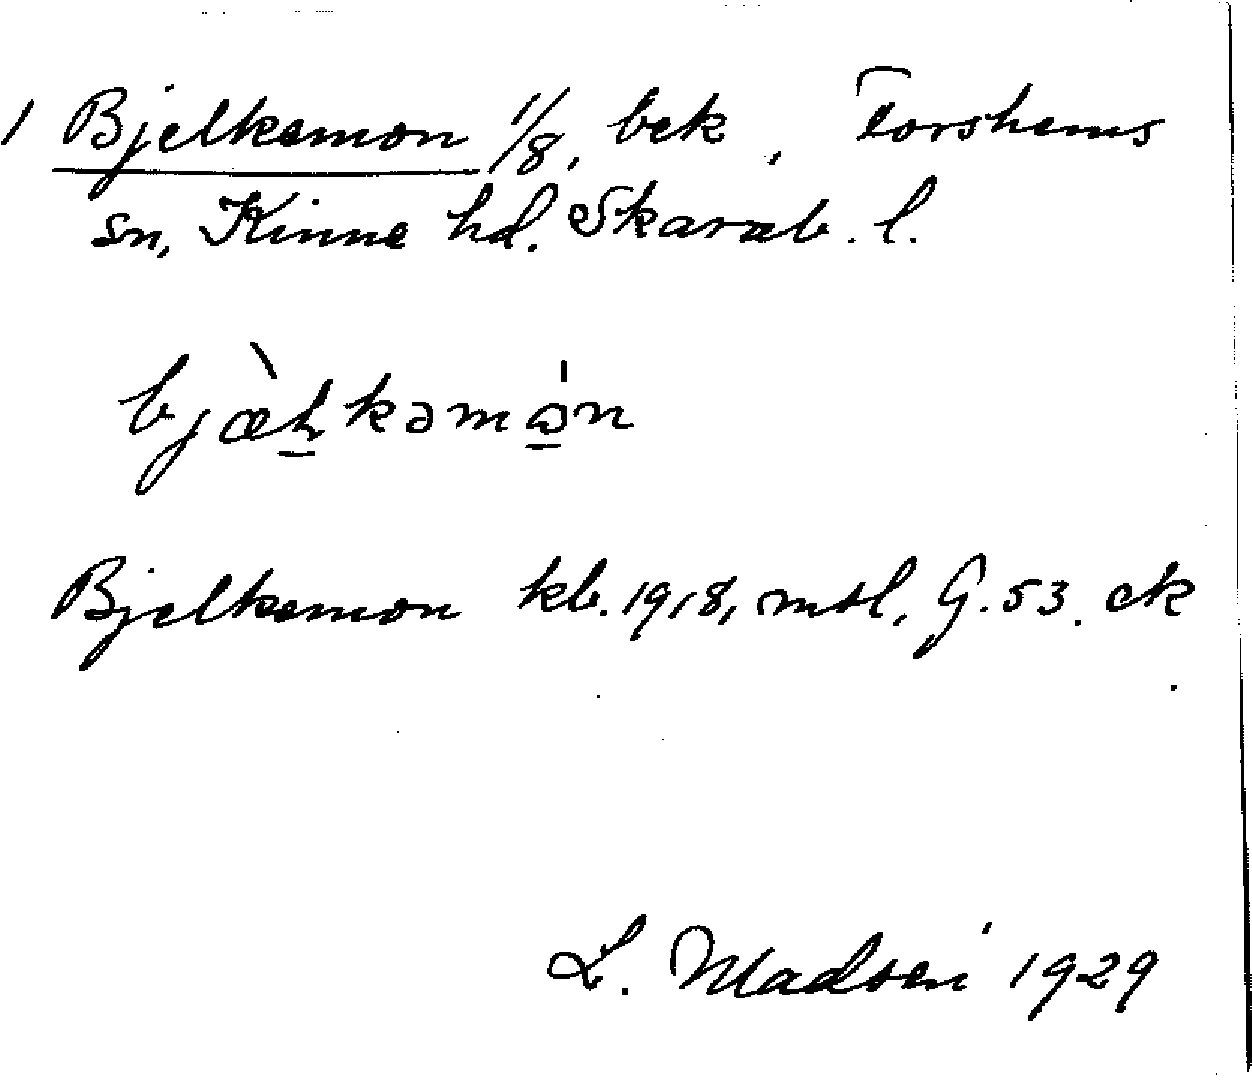 1 Bjelkemon 1/8, bek, Forshems
sn, Kinne hd. Skarab. l.
bjæ̀ḻkəmə̱́n
Bjelkemon kb. 1918, mtl, G. 53. ek
L. Madsen 1929